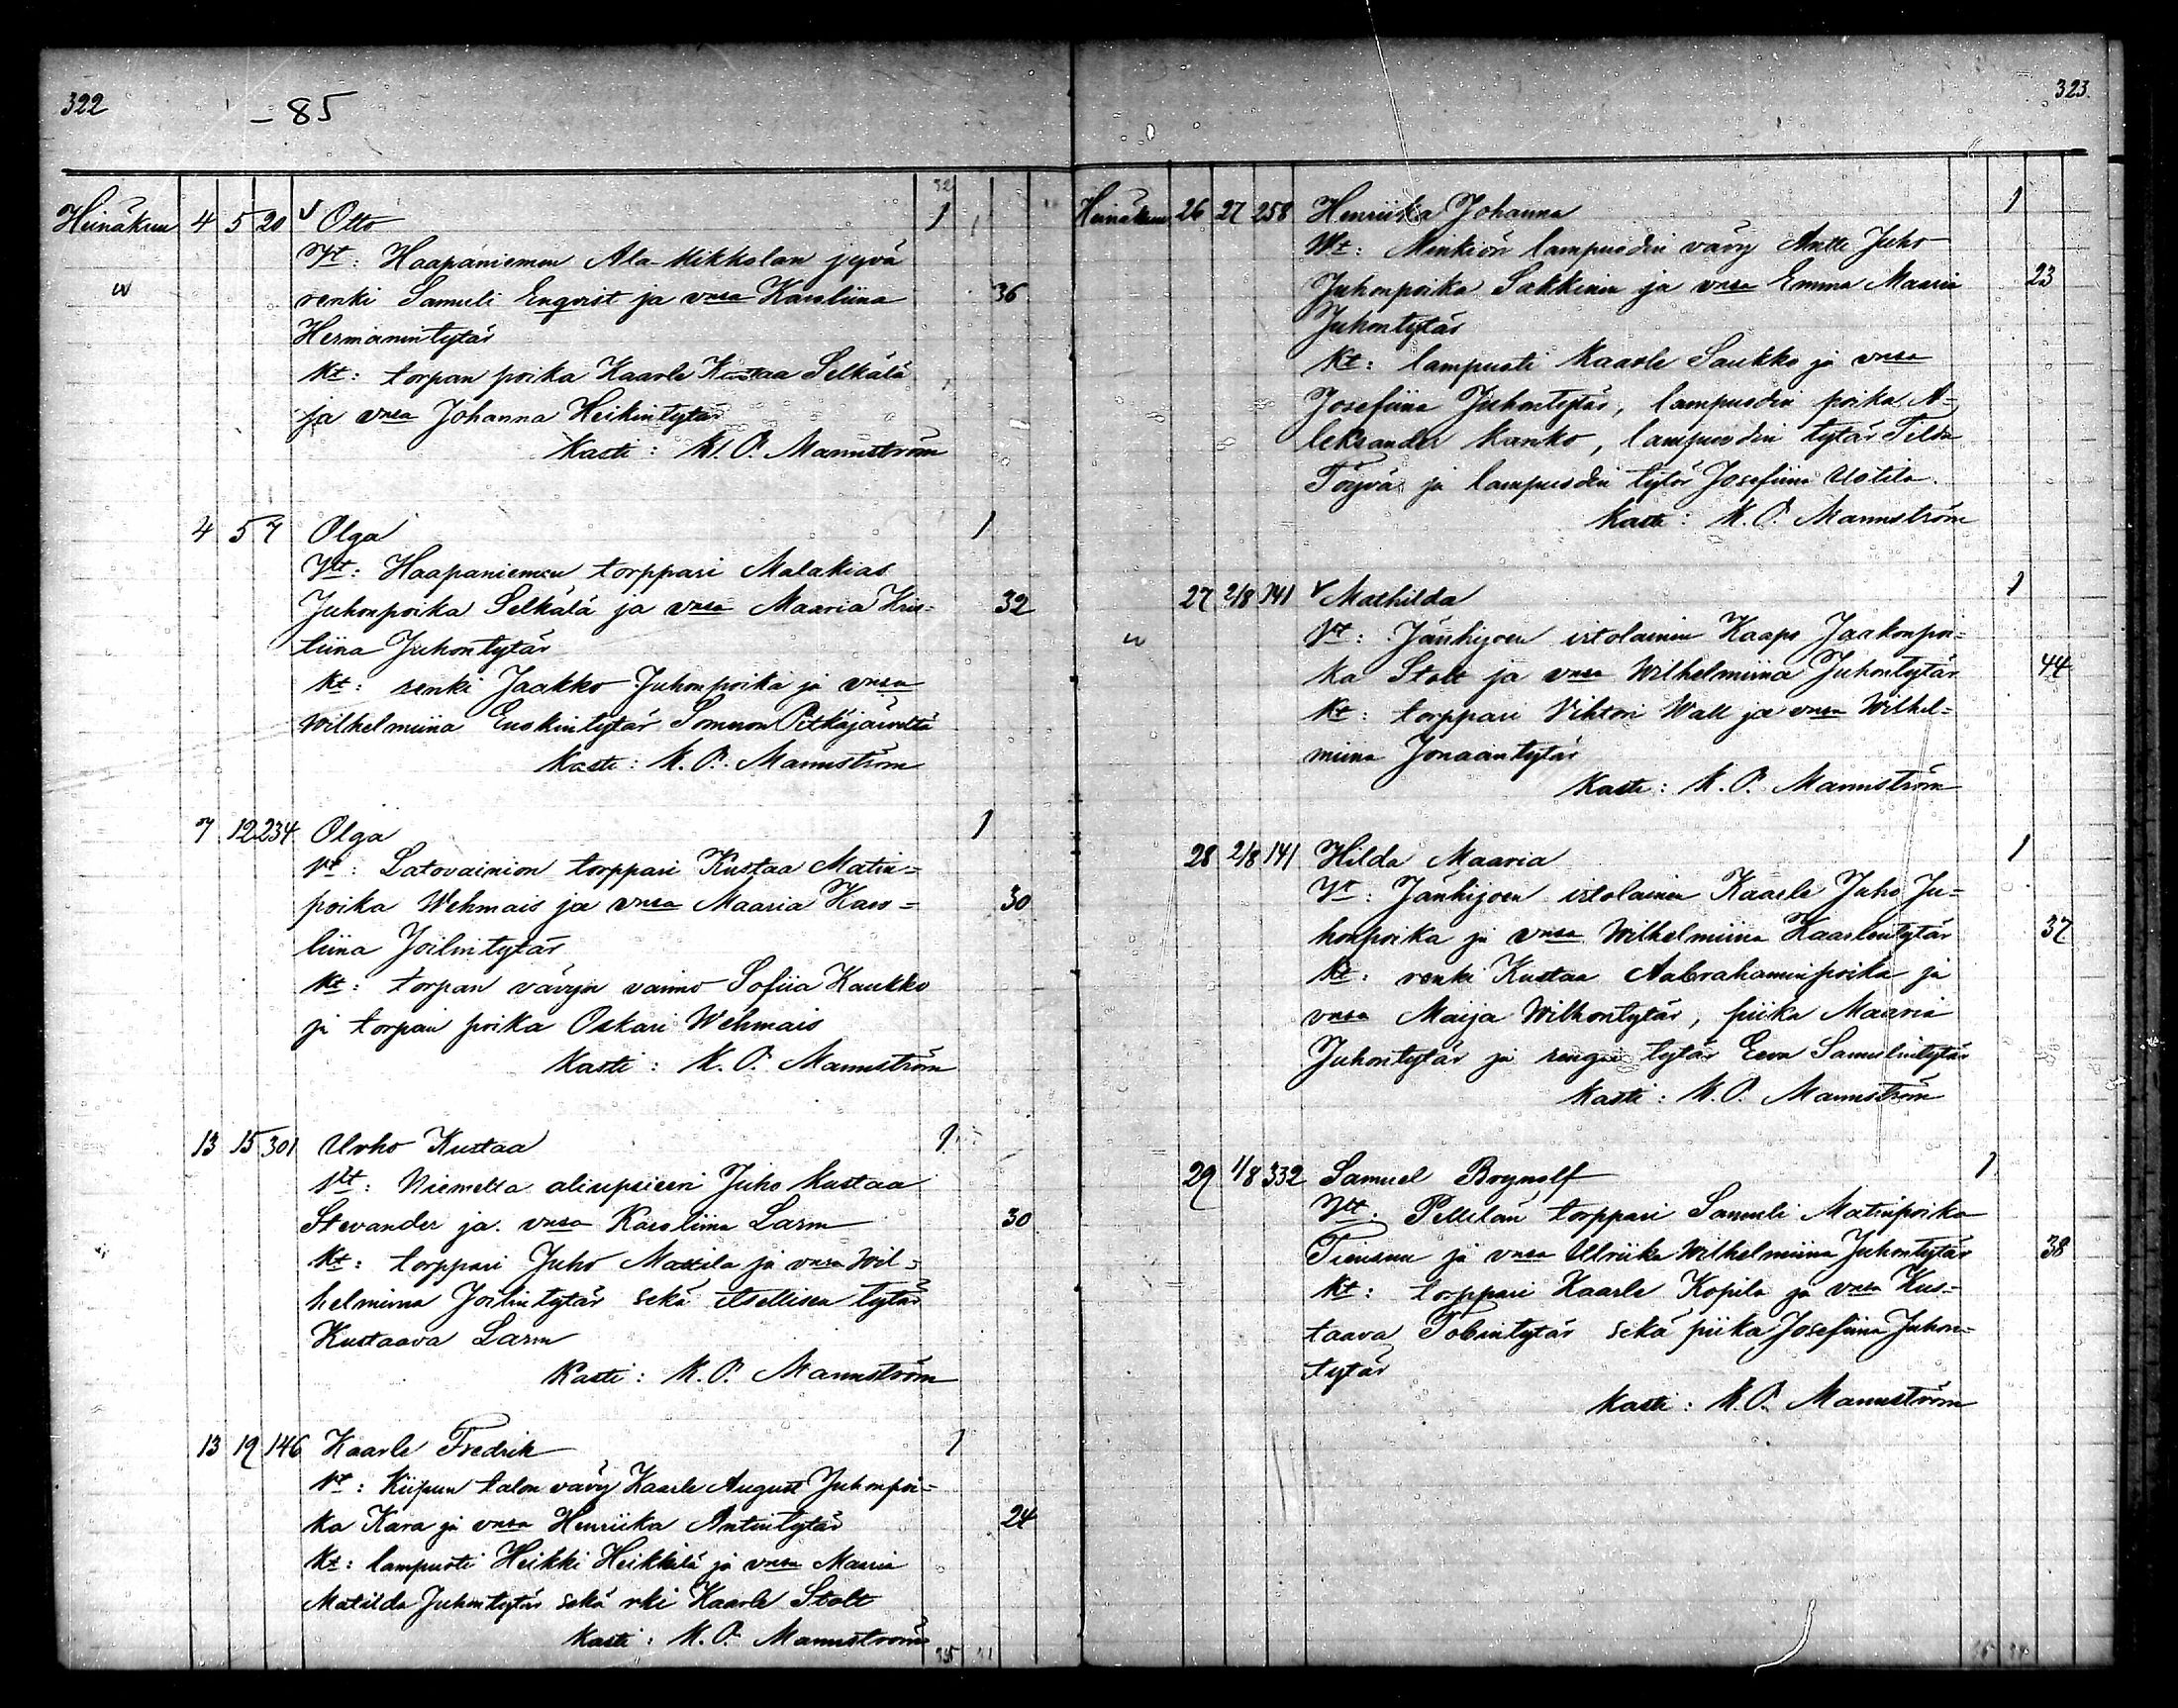 322
- 85
Heinäkuu 4 5 20 Otto 1
Vt: Haapaniemen Ala-Mikkolan jyvä
renki Samuli Enqvist ja vmsa Karoliina 36
Hermanintytär
Kt: torpan poika Kaarle Kustaa Selkälä
ja vmsa Johanna Heikintytär
Kasti: K. O. Mannström
4 5 7 Olga 1
Vt: Haapaniemen torppari Malakias
Juhonpoika Selkälä ja vmsa Maaria Kris= 32
tiina Juhontytär
Kt: renki Jaakko Juhonpoika ja vmsa
Wilhelmiina Enokintytär Someron Pitkäjärveltä
Kasti: K. O. Mannström
7 12 234 Olga 1
Vt: Latovainion torppari Kustaa Matin=
poika Wehmais ja vmsa Maaria Karo= 30
liina Joilintytär
Kt: torpan vävyn vaimo Sofiia Kaukko
ja torpan poika Oskari Wehmais
Kasti: K. O. Mannström
13 15 301 Urho Kustaa 1
Vt: Niemeltä aliupsieeri Juho Kustaa
Stevander ja vmsa Karoliina Larm 30
Kt: torppari Juho Mattila ja vmsa Wil=
helmiina Joilintytär sekä itsellisen tytär
Kustaava Larm
Kasti: K. O. Mannström
13 19 146 Kaarle Fredrik 1
Vt: Kiipun talon vävy Kaarle August Juhonpoi=
ka Kara ja vmsa Henriika Antintytär 24
Kt: lampuoti Heikki Heikkilä ja vmsa Maaria
Matilda Juhontytär sekä rki Kaarle Stolt
Kasti: K. O. Mannström
323
Heinäkuu 26 27 258 Henriika Johanna 1
Vt: Minkiön lampuodin vävy Antti Juho
Juhonpoika Säkkinen ja vmsa Emma Maaria 23
Juhontytär
Kt: lampuoti Kaarle Saukko ja vmsa
Josefiina Juhontytär, lampuodin poika A=
leksander Kanko, lampuodin tytär Tilda
Töyvä ja lampuodin tytär Josefiina Uotila.
Kasti: K. O. Mannström
27 2/8 141 Mathilda 1
Vt: Jänhijoen istolainen Kaapo Jaakonpoi=
ka Stolt ja vmsa Wilhelmiina Juhontytär 44
Kt: torppari Vihtori Wall ja vmsa Wilhel=
miina Jonaantytär
Kasti: K. O. Mannström
28 2/8 141 Hilda Maaria 1
Vt: Jänhijoen istolainen Kaarle Juho Ju=
honpoika ja vmsa Wilhelmiina Kaarlentytär 37
Kt: renki Kustaa Aabrahaminpoika ja
vmsa Maija Wilhontytär, piika Maaria
Juhontytär ja rengin tytär Eeva Samulintytär
Kasti: K. O. Mannström
29 1/8 332 Samuel Brynolf 1
Vt: Pellilän torppari Samuli Matinpoika
Tiensuu ja vmsa Ulriika Wilhelmiina Juhontytär 38
Kt: torppari Kaarle Kopila ja vmsa Kus=
taava Tobintytär sekä piika Josefiina Juhon=
tytär
Kasti: K. O. Mannström